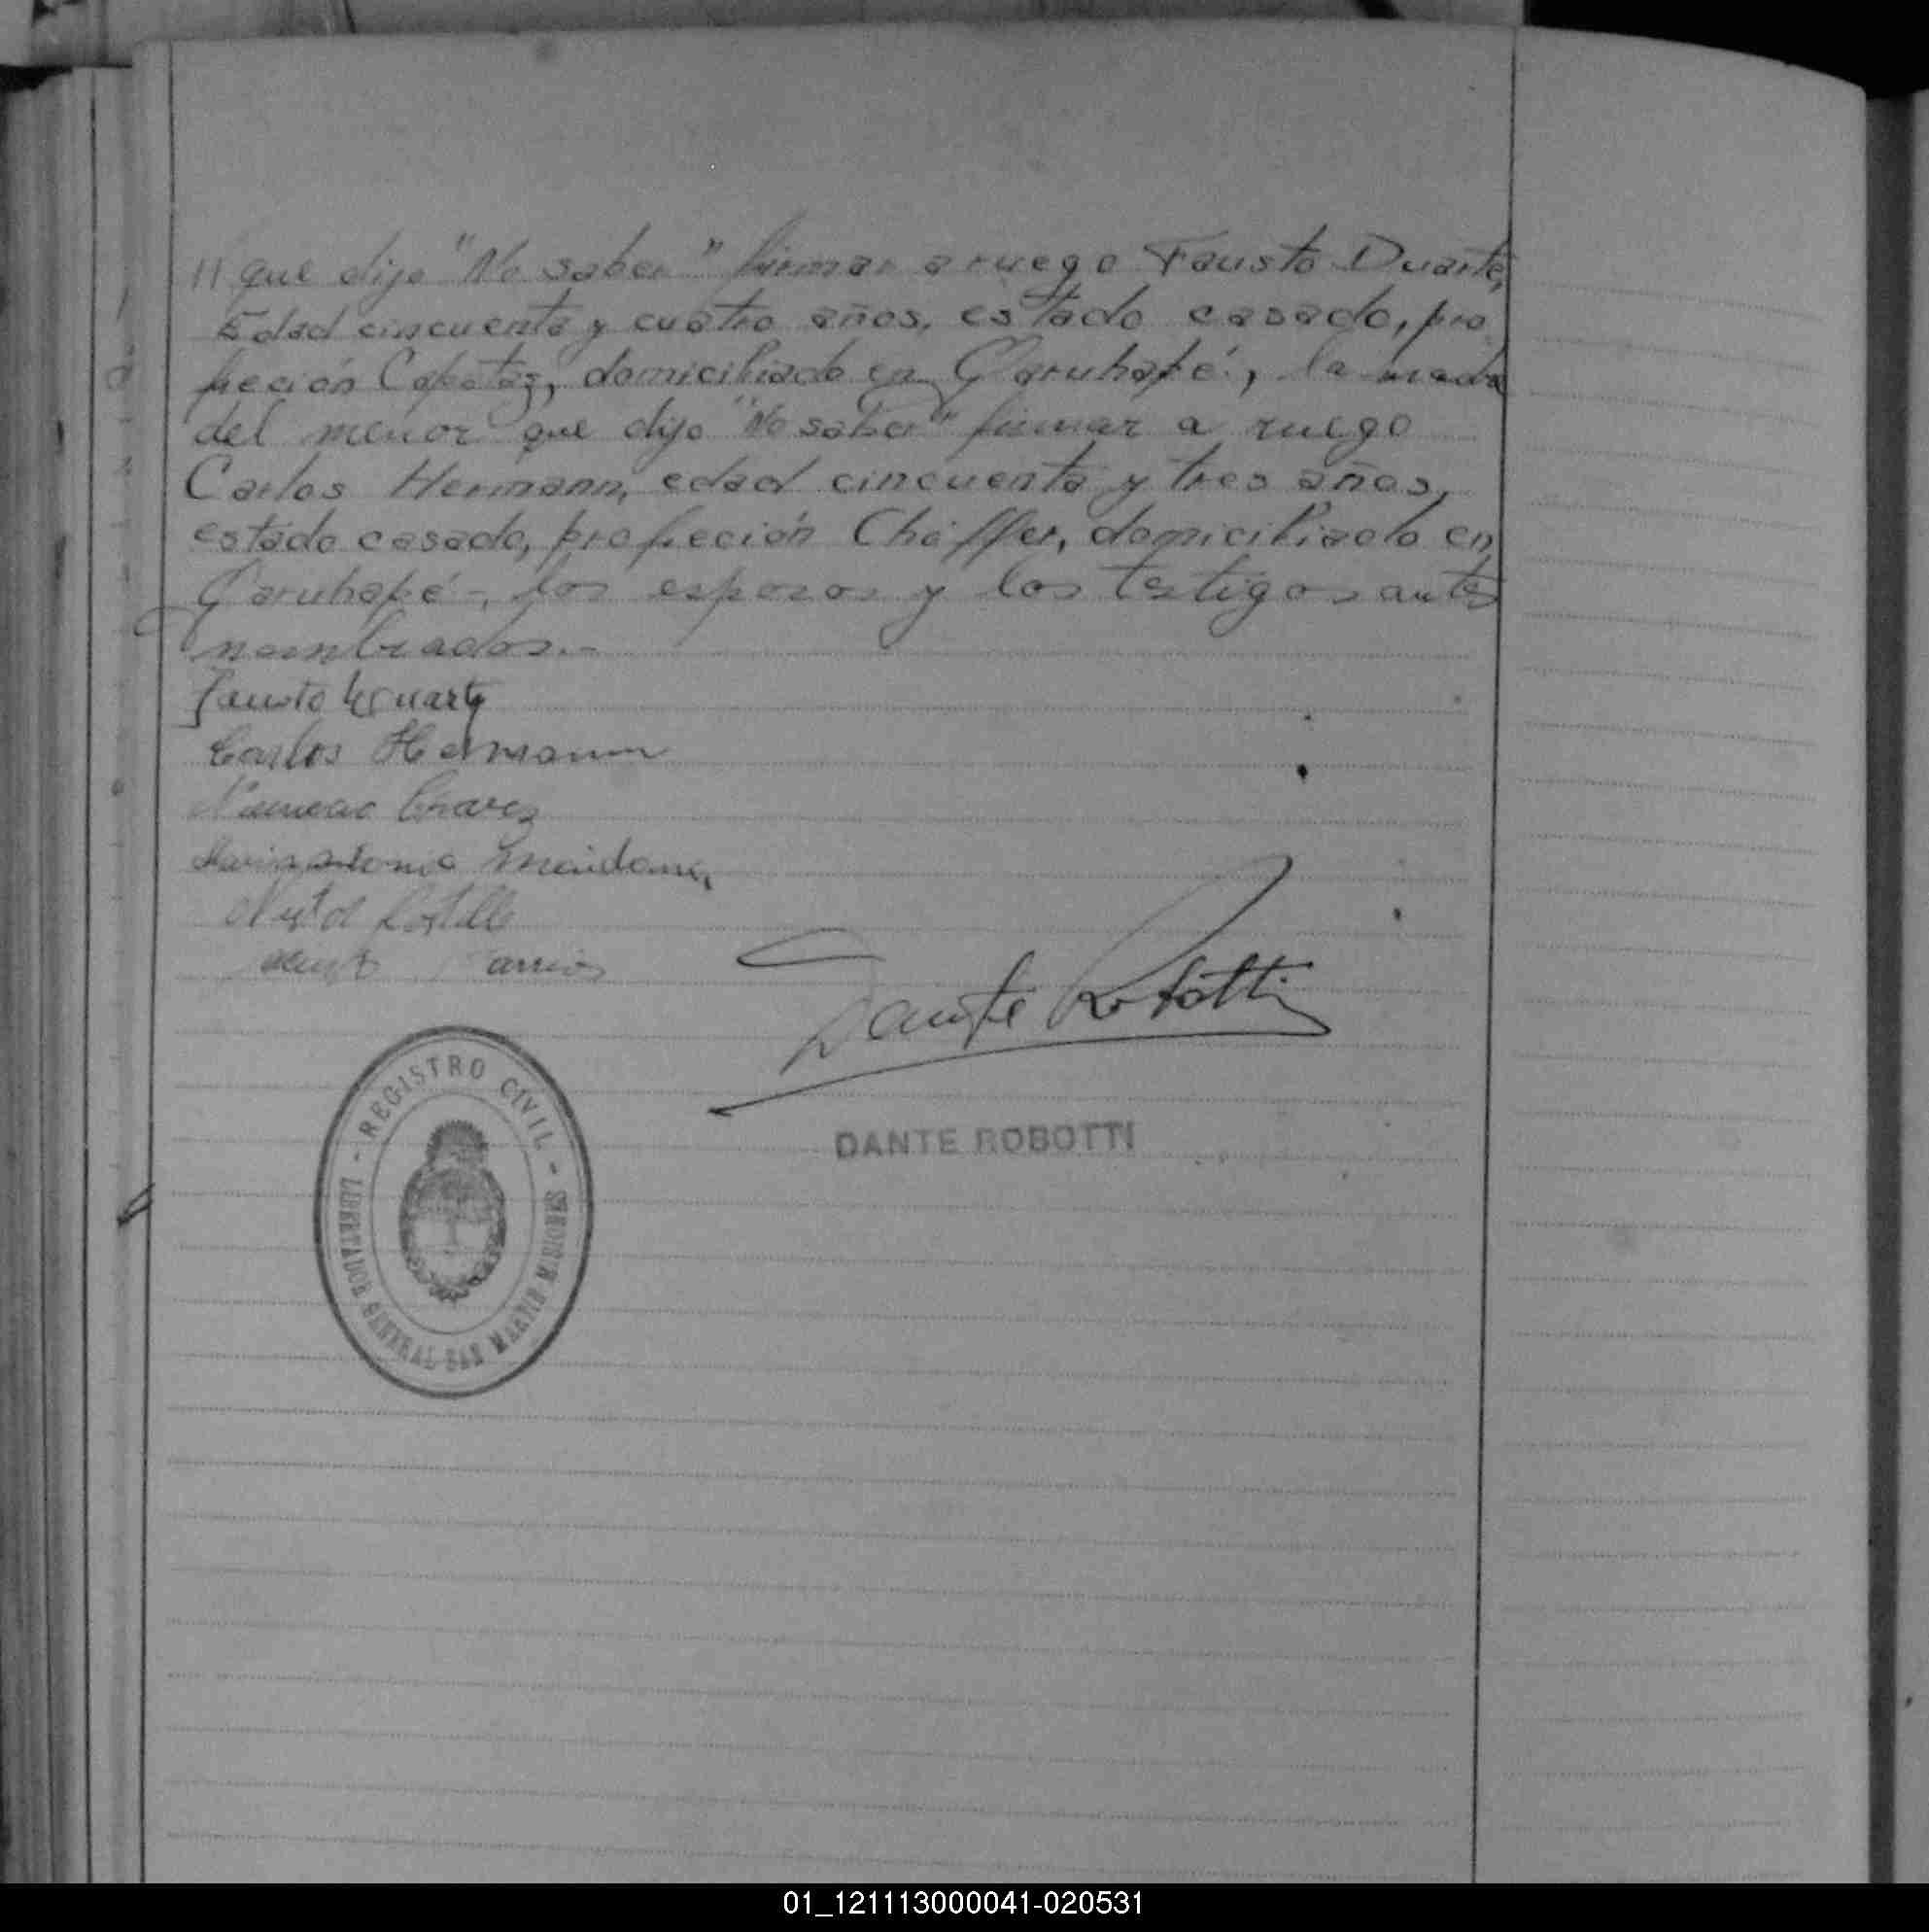 // que dijo "No saber" firmar a ruego Fausto Duarte,
Edad cincuenta y cuatro años, estado casado, pro
feción Capataz, domiciliado en Garuhapé, la madre
del menor que dijo "No saber" firmar a ruego
Carlos Hermann, edad cincuenta y tres años,
estado casado, profeción Chóffer, domiciliado en
Garuhapé-, los esposos y los testigos antes
nombrados.-
Fausto Duarte
Carlos Hermann
Maria Antonia
Dante Robotti
- REGISTRO CIVIL -
LIBERTADOR GENERAL SAN MARTIN MISIONES
DANTE ROBOTTI
01_121113000041-020531